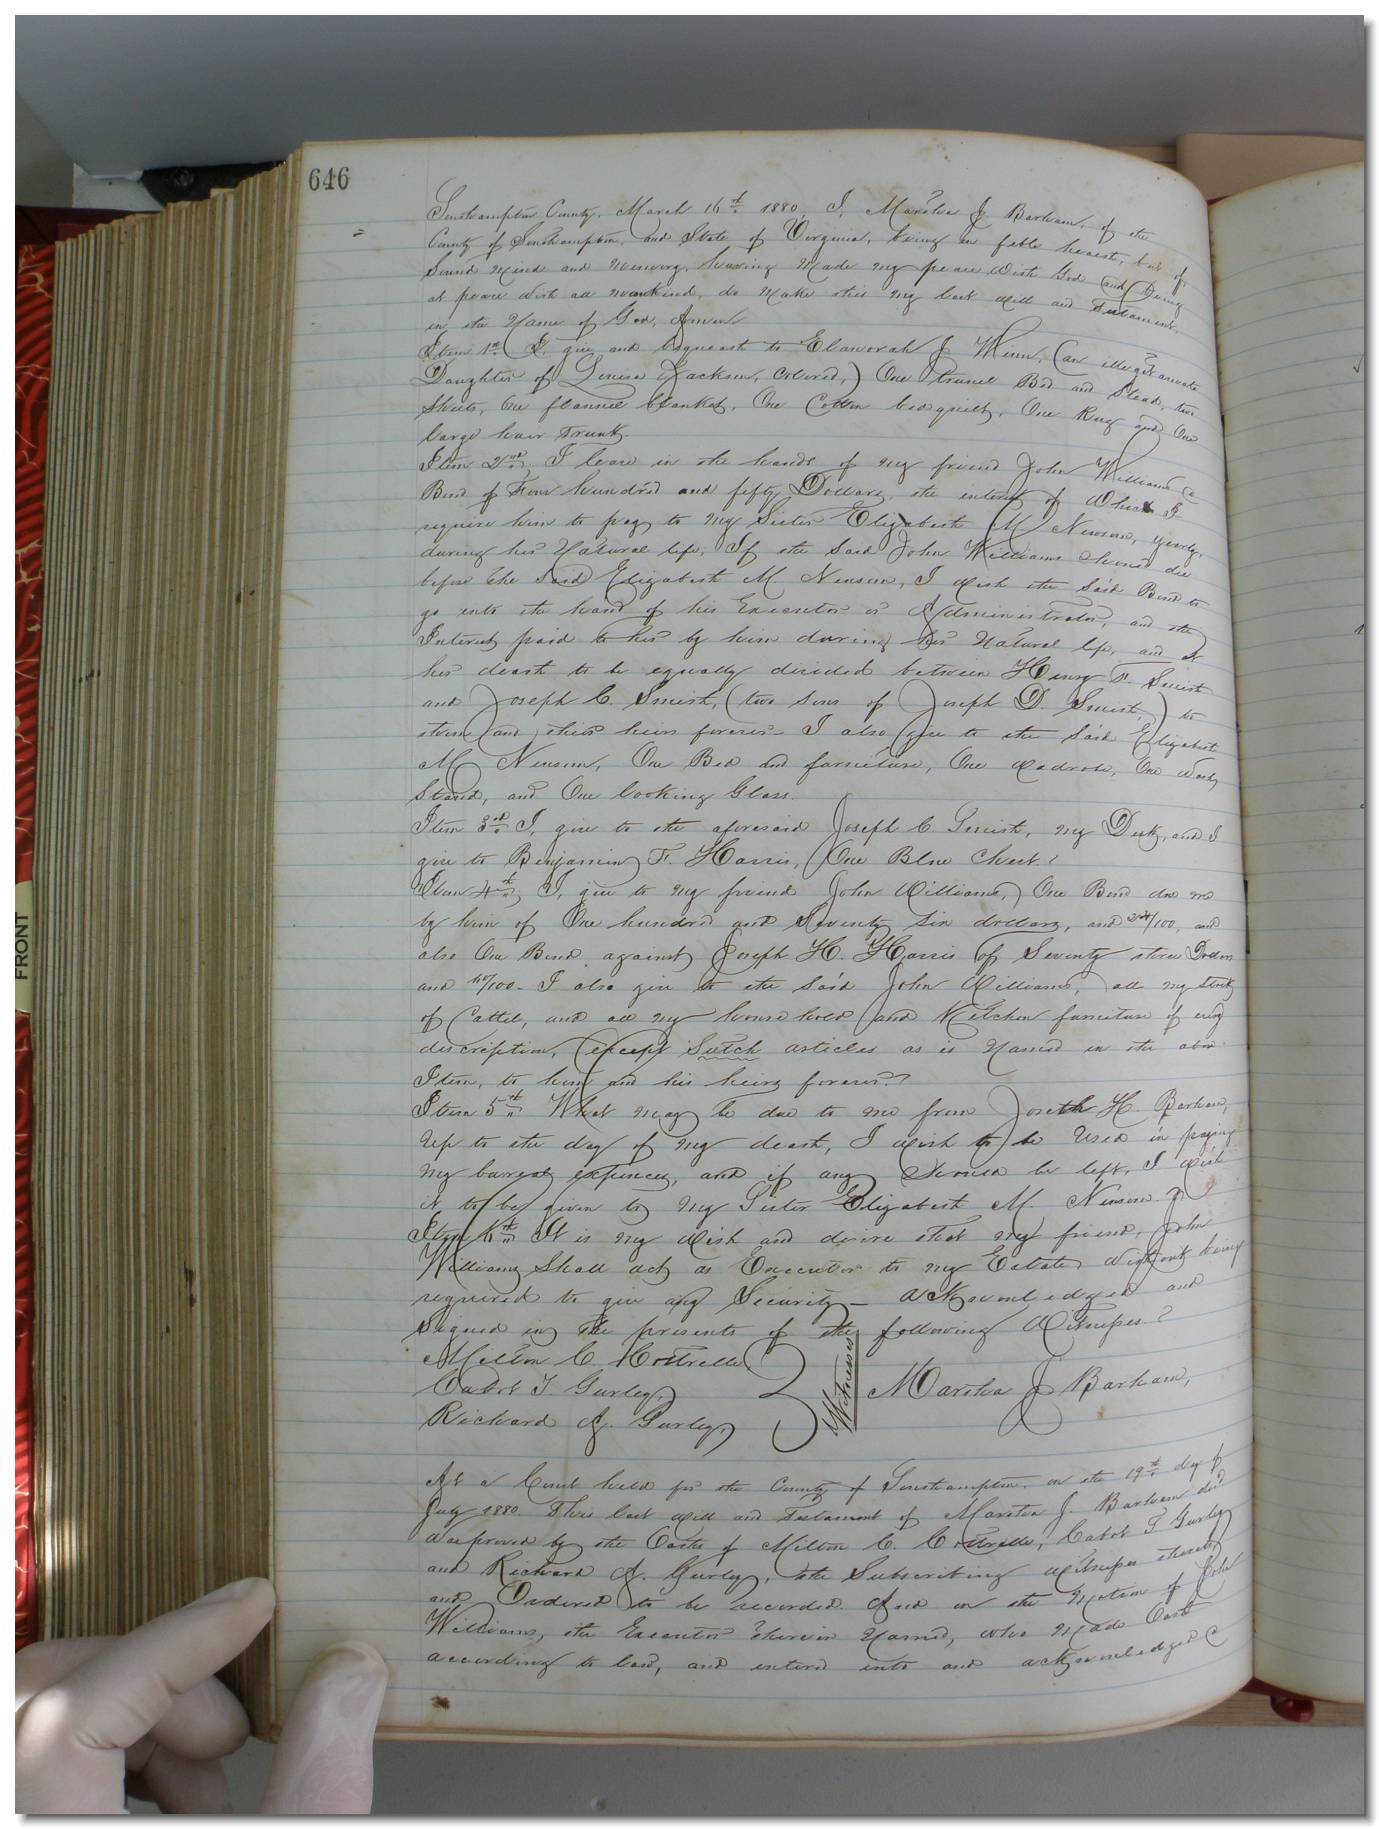 646
Southampton County, March 16th 1880, I, Martha J Barham, of the
County of Southampton, and State of Virginia, being in feble heaith, but of
Sound Mind and memory, having Made my peace with God and being
at peace with all mankind, do Make this my last will and Testament,
in the Name of God, Amen
Item 1st I, give and bequeath to J. Winn, (an illegitamate
Daughter of Louisa Jackson, colored,) One trunel Bed and Stead, two
Sheets, One flannel blanket, One Cotton bed quilt, One Rug and One
large hair Trunk.
Item 2nd, I leave in the hands of my friend John Williams a
Bond of Four hundred and fifty Dollars, the interest of Which I
require him to pay to my Sister Elizabeth M Newsom, yearly,
during her Natural life, If the Said John Williams should die
before the said Elizabeth M Newsom, I wish the Said Bond to
go into the hand of his Executor or Administrator, and the
Interest paid to her by him during her Natural life, and at
her death to be equally divided between Henry F. Smith
and Joseph C. Smith, (two sons of Joseph D. Smith,) to
them and their heirs forever I also give to the Said Elizabeth
M Newsom, One Bed and furniture, One wadrobe, One Wash
Stand, and One looking Glass.
Item 3rd I, give to the aforesaid Joseph C Smith, my Desk, and I
give to Benjamin F. Harris, One Blue Chest.
Item 4th, I, give to my friend John Williams, One Bond due me
by him of One hundred and Seventy Six dollars, and 24/100, and
also One Bond against Joseph H. Harris of Seventy three Dollars
and 40/100 - I also give to the Said John Williams, all my Stock
of Cattle, and all my household and Kitchen furniture of every
discription, (except Sutch articles as is Named in the above
Item, to him and his heirs forever.
Item 5th What may be due to me from Joseth H. Barham,
Up to the day of my death, I wish to be Used in paying
My bureal expences, and if any should be left, I wish
it to be given to my Sister Elizabeth M. Newsom
Item 6th It is my wish and desire that my friend, John
Williams Shall act as Executor to my Estate without being
required to give any Security - acknowledged and
Signed in the presents of the following Witnesses
Milton C. Cottrelle
Cabot T. Gurley,
Richard A. Gurley,
Witnesses
Martha J Barham,
At a Court held for the County of Southampton, on the 19th day of
July 1880. This last will and Testament of Martha J. Barham dec'd
was proved by the Oaths of Milton C. Cottrelle, Cabot T Gurley
and Richard A. Gurley, the Subscribing witnesses thereto,
and Ordered to be recorded And on the Motion of John
Williams, the Executor therein Named, who Made Oath
according to law, and enterd into and acknowledged a
FRONT